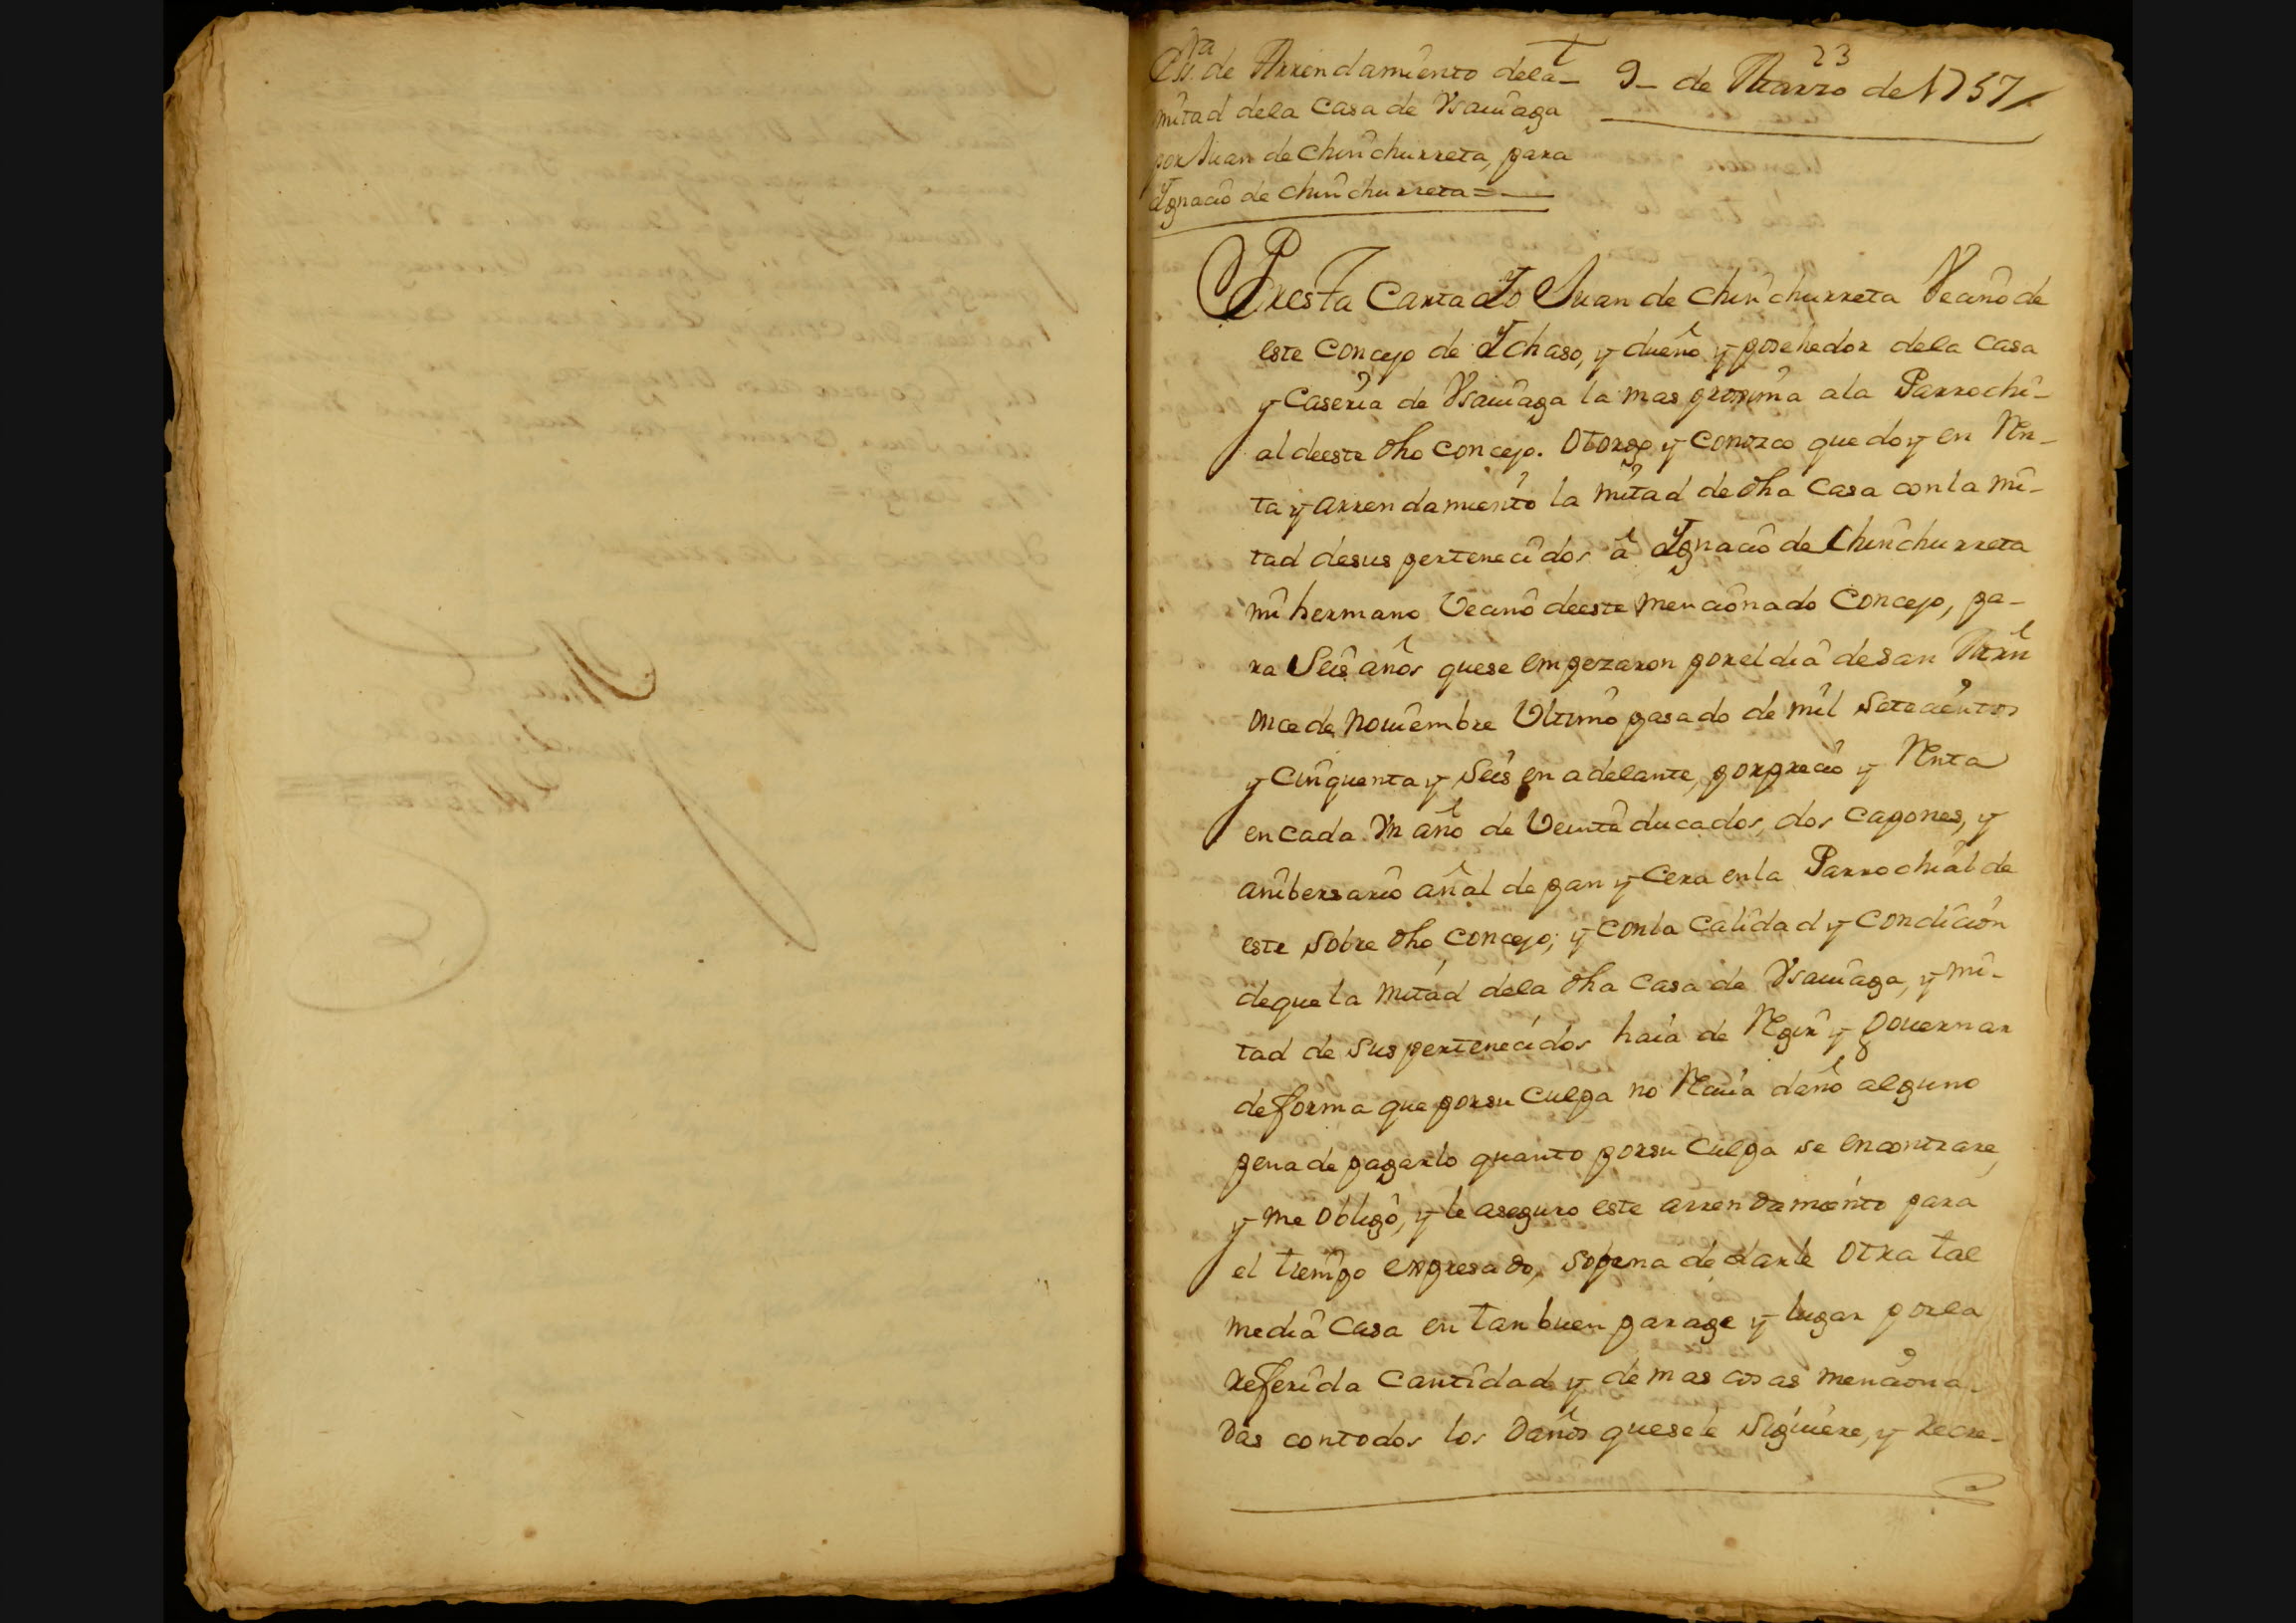 23
Essra de Arrendamiento dela
mitad dela Casa de Ysauiaga
por Juan de Chinchurreta, para
Ygnacio de Chinchurreta =
9 de Marzo de 1757
Por esta Carta Yo Juan de Chinchurreta Vecino de
este Concejo de Ychaso, y dueño y posehedor dela Casa
y Caseria de Ysauiaga la mas proxima ala Parrochi-
al deeste dho Concejo. Otorgo y Conozco que doy en Ren-
ta y arrendamiento la mitad de dha Casa con la mi-
tad desus pertenecidos â Ygnacio de Chinchurreta
mi hermano Vecino deeste mencionado Concejo, pa-
ra Seis años quese empezaron por el dia de San Mrn
once de Noviembre Ultimo pasado de mil setecientos
y Cinquenta y Seis en adelante, por precio y Renta
en cada Vn año de Veinte ducados, dos Capones, y
anibersario añal de pan y Cera en la Parrochial de
este sobre dho Concejo; y con la Calidad y Condicion
deque la Mitad dela dha Casa de Ysauiaga, y mi-
tad de sus pertenecidos haia de Regir y Gouernar
deforma que por su Culpa no Reciua daño alguno
pena de pagarlo quanto por su Culpa se encontrare,
y me Obligo, y le aseguro este arrendamiento para
el tiempo expresado, sopena de darle Otra tal
media Casa en tan buen parage y lugar por la
referida Cantidad y demas cosas menciona-
das con todos los Daños quesele siguiere, y Recre-